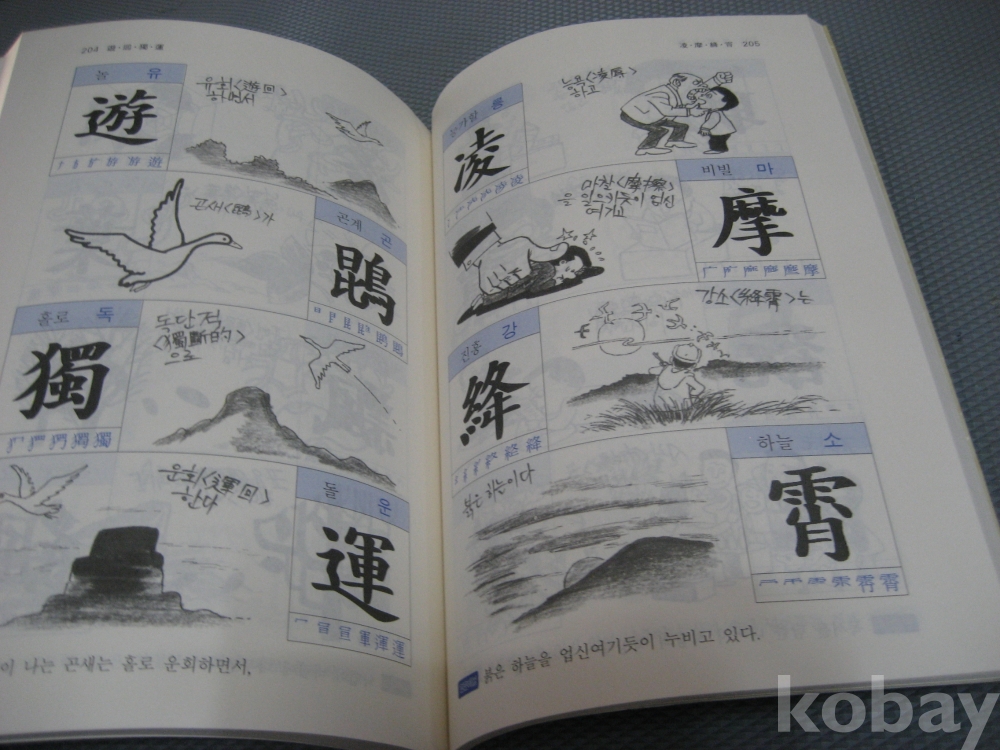 204 遊·鵾·獨·運
놀 유
遊
유회<遊回>
하면서
곤새<鵾>가
곤계 곤
鵾
홀로 독
獨
독단적
<獨斷的>
으로
운회<運回>
한다
돌 운
運
이 나는 곤새는 홀로 운회하면서,
凌·摩·絳·霄 205
릉
凌
능욕<凌辱>
하고
비빌 마
摩
마찰<摩擦>
을 일으키듯이 업신
여기고
진홍 강
絳
강소<絳霄>는
붉은 하늘이다
하늘 소
霄
붉은 하늘을 업신여기듯이 누비고 있다.
kobay